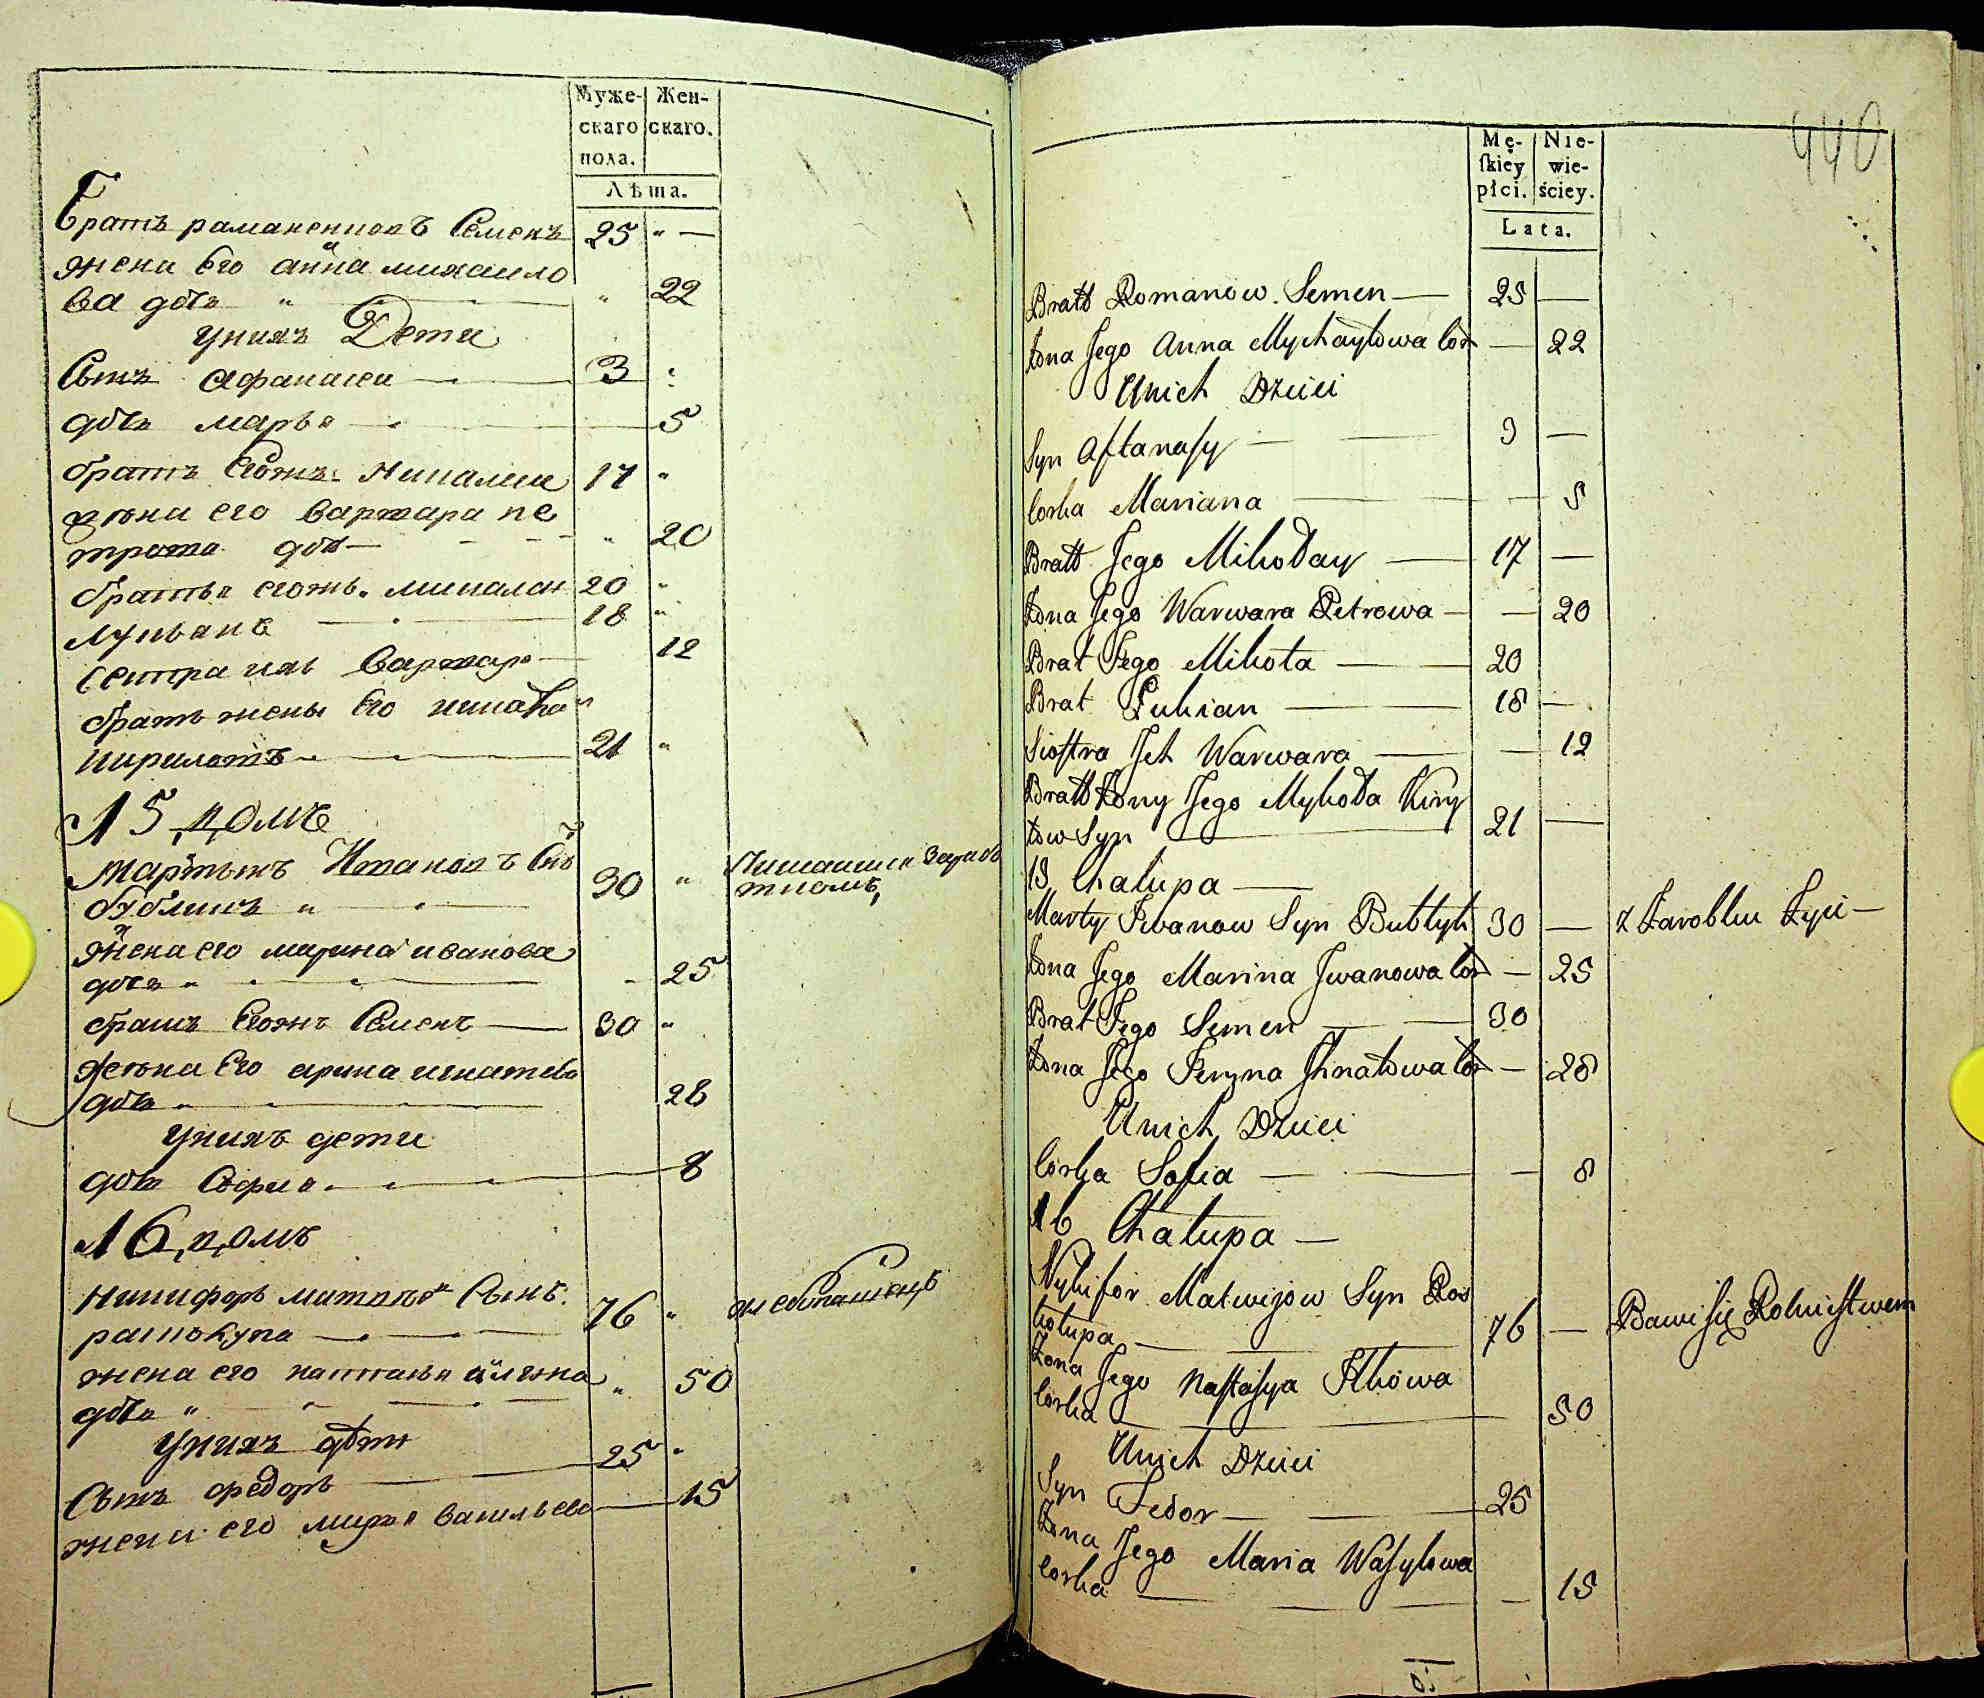 Муже-
скаго
пола.
Жен-
скаго.
Лѣта.
Братъ раманенковъ Семенъ 25 " —
жена Его анна михаило
ва дочь " " 22
Униxъ Дети
Сынъ Афанасеи 3
дочь марья 5
братъ Егожъ Николаи 17 "
жена его варвара пе
трова дочь " 20
братья егожъ николаи 20 "
лукьянъ 18 "
сестра ихъ варвара 12
братъ жены Его никола
кириловъ 21 "
15 домъ
мартынъ Ивановъ Снъ
бубликъ " 30 " Питаится Зарабо
ткомъ,
жена его марина иванова
дочь " 25
братъ Егожъ Семенъ 30 "
жена Его арина игнатева
дочь " 28
Унихъ дети
дочь София 8
16 домъ
никифоръ матвѣевъ Сынъ 76 "
жена его настасья
дочь " " 50
Унихъ дѣти
Сынъ федоръ 25 "
жена его марья васильева 15
440
Mę-
skiey
płci.
Nie-
wie-
ściey.
Lata.
Bratt Romanow Semen — 25 —
Żona Jego Anna Mychayłowa Cor — 22
Unich Dzieci
Syn Aftanasy — 3 —
Corka Mariana — 5
Bratt Jego Mikołay — 17 —
Żona Jego Warwara Petrowa — — 20
Brat Jego Mikota — 20
Brat Łukian — 18 —
Siostra Jch Warwara — — 12
Bratt Żony Jego Mykoła Kiry
łow Syn — 21 —
15 Chałupa —
Marty Iwanow Syn Bubłyk 30 — z Zarobku Żyie —
Żona Jego Marina Jwanowa Cor — 25
Brat Jego Semen — 30
Żona Jego Jeryna Jhnatowa Cor — 28
Unich Dzieci
Corka Sofia — — 8
16 Chałupa —
Nykifor Matwijow Syn Ros
tołupa — 76 — Bawi się Rolnistwem
Żona Jego Nastasya Jlkowa
Corka — 50
Unich Dzieci
Syn Fedor — 25
Żona Jego Maria Wasylowa
Corka — — 15